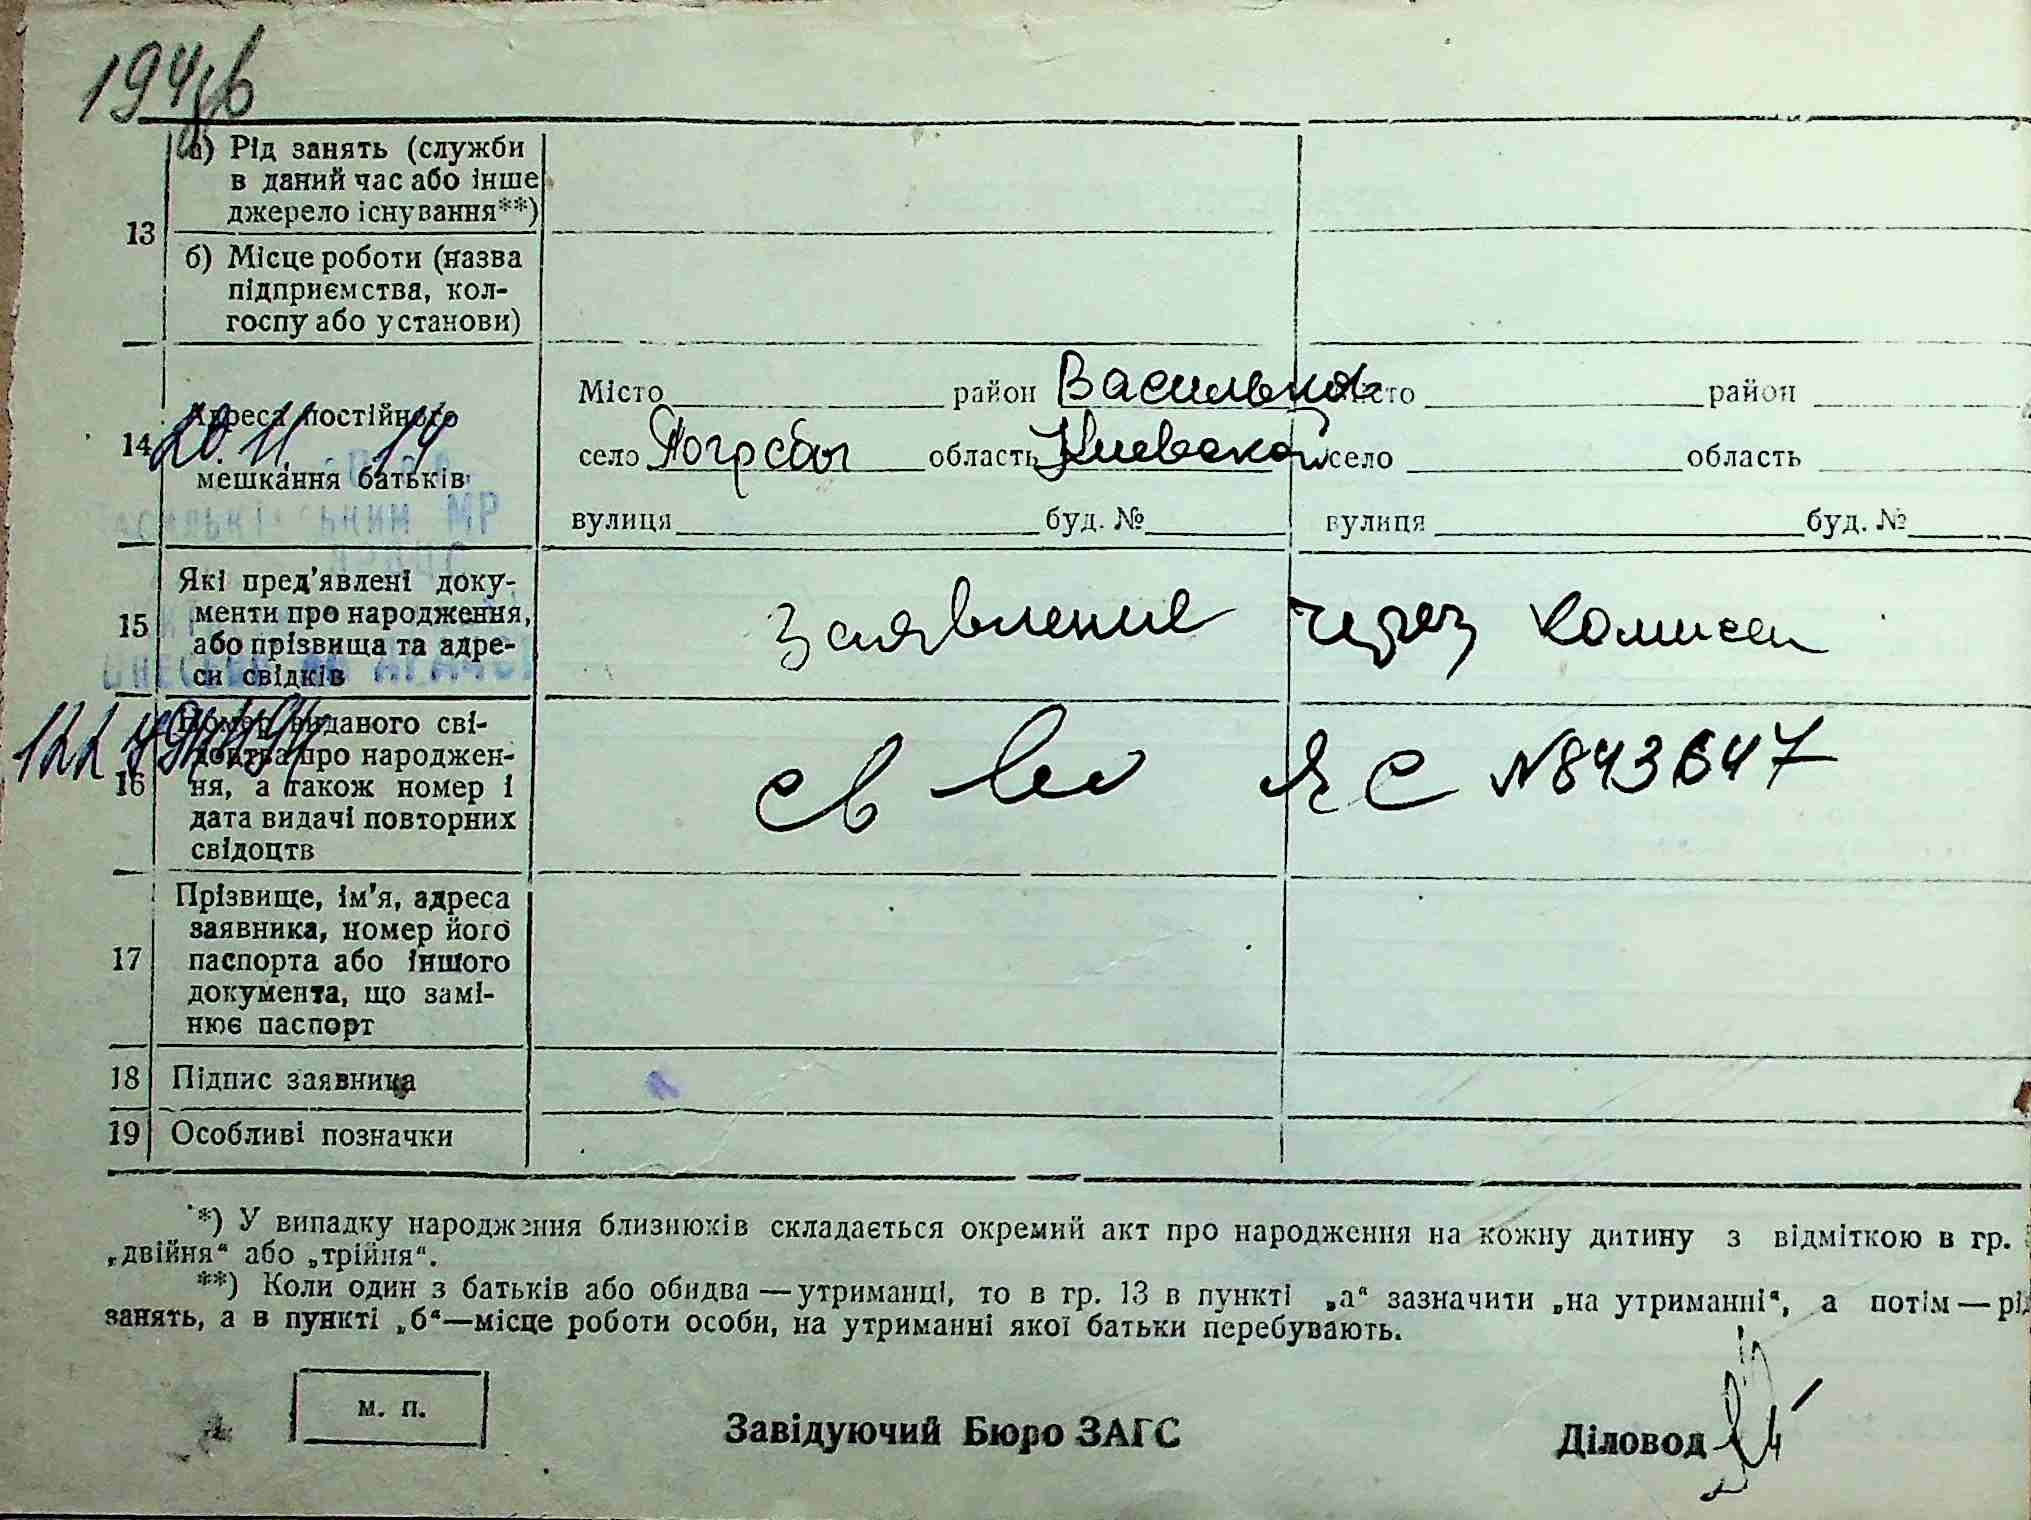 а) Рід занять (служби
в даний час або інше
джерело існування**)
13
б) Місце роботи (назва
підприємства, кол-
госпу або установи)
Місто район Васильков місто район
14 Адреса постійного
20.11. 14
село Погребы область Киевской село область
мешкання батьків
МР
вулиця буд. № вулиця буд. №
Які пред'явлені доку-
15 менти про народження, Заявление через комисси
або прізвища та адре-
си свідків
Номер виданого сві-
доцтва про народжен-
16 ня, а також номер і св во ЯС №843647
дата видачі повторних
свідоцтв
Прізвище, ім'я, адреса
заявника, номер його
17 паспорта або іншого
документа, що замі-
нює паспорт
18 Підпис заявника
19 Особливі позначки
*) У випадку народження близнюків складається окремий акт про народження на кожну дитину з відміткою в гр.
„двійня“ або „трійня“.
**) Коли один з батьків або обидва—утриманці, то в гр. 13 в пункті „а“ зазначити „на утриманні“, а потім—рід
занять, а в пункті „б“—місце роботи особи, на утриманні якої батьки перебувають.
м. п.
Завідуючий Бюро ЗАГС Діловод